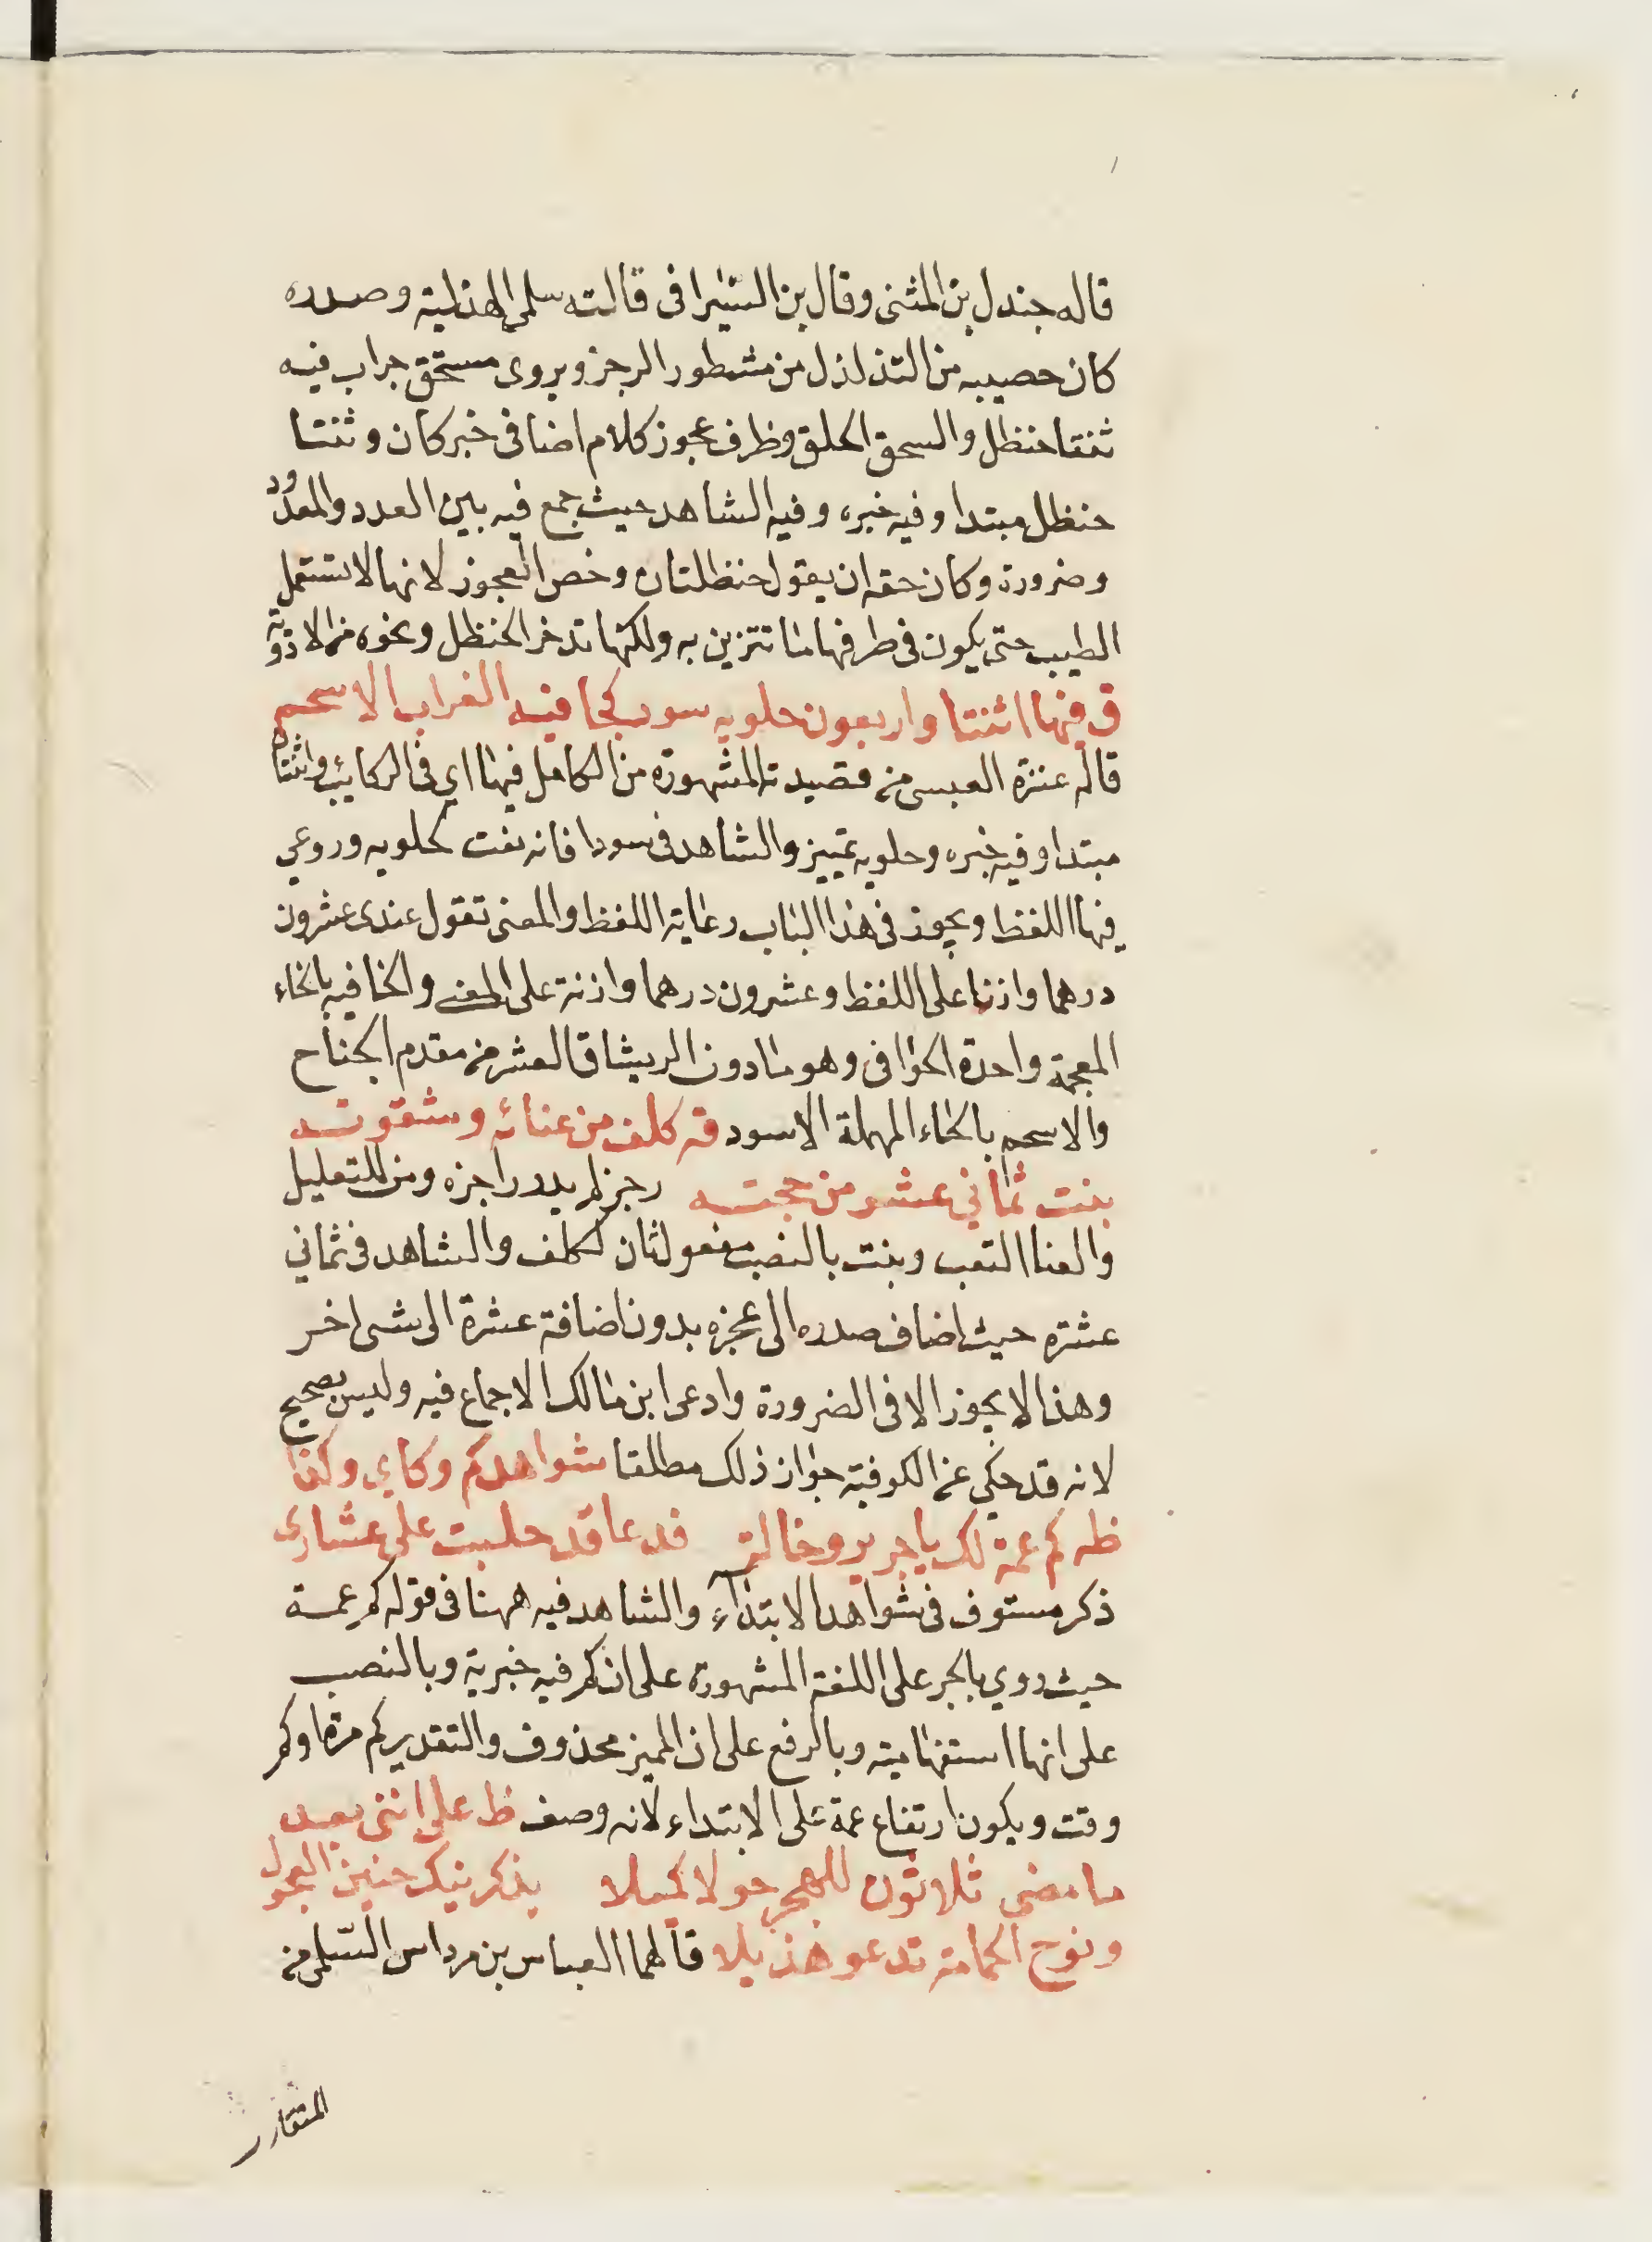 قاله جندل بن المثنى وقال بن السيرافى قالته سلمى الهذلية وصدره
كان حصييه من التذلذل من مشطور الرجز ويروى مستحق جراب فيه
ثنتا حنظل والسحق الخلق وظرف عجوز كلام اضافى خبر كان وثنتا
حنظل مبتدا وفيه خبره وفيه الشاهد حيث جمع فيه بين العدد والمعدود
وضرورة وكان حقه ان يقول حنظلتان وخص العجوز لانها لا تستعمل
الطيب حتى يكون فى ظرفها ما تتزين به ولكنها تدخر الحنظل ونحوه من الادوية
ق فيها اثنتا واربعون حلوبه سودا كخافيه الغراب الاسحم
قاله عنترة العبسى من قصيدته المشهورة من الكامل فيها اي فى الركايب واثنتان
مبتدا وفيه خبره وحلوبه تمييز والشاهد فى سودا فانه نعت لحلوبه وروعي
فيها اللفظ ويجوز فى هذا الباب رعاية اللفظ والمعنى تقول عندى عشرون
درهما وازنا على اللفظ وعشرون درهما وازنة على المعنى والخافيه بالخاء
المعجمة واحدة الخوافى وهو ما دون الريشات العشر من مقدم الجناح
والاسحم بالحاء المهملة الاسود قه كلف من عنائه وشقوته
بنت ثماني عشر من حجته رجز لم يدر راجزه ومن للتعليل
والعنا التعب وبنت بالنصب مفعول ثان لكلف والشاهد فى ثماني
عشرة حيث اضاف صدره الى عجزه بدون اضافة عشرة الى شى اخر
وهذا لا يجوز الا فى الضرورة وادعى ابن مالك الاجماع فيه وليس بصحيح
لانه قد حكي عن الكوفية جواز ذلك مطلقا شواهد كم وكاي وكذا
ظه كم عمة لك يا جرير وخالة فدعا قد حلبت على عشارى
ذكر مستوف فى شواهد الابتداء والشاهد فيه ههنا فى قوله كم عمة
حيث روي بالجر على اللغة المشهورة على ان كم فيه خبرية وبالنصب
على انها استفهامية وبالرفع على ان المميز محذوف والتقدير كم مرة او كم
وقت ويكون ارتفاع عمة على الابتداء لانه وصف ظ على اننى بعد
ما مضى ثلاثون للهجر حولا كميلا يذكرنيك حنين العجول
ونوح الحمامة تدعو هذيلا قالهما العباس بن مرداس السلمى من
المتقارب